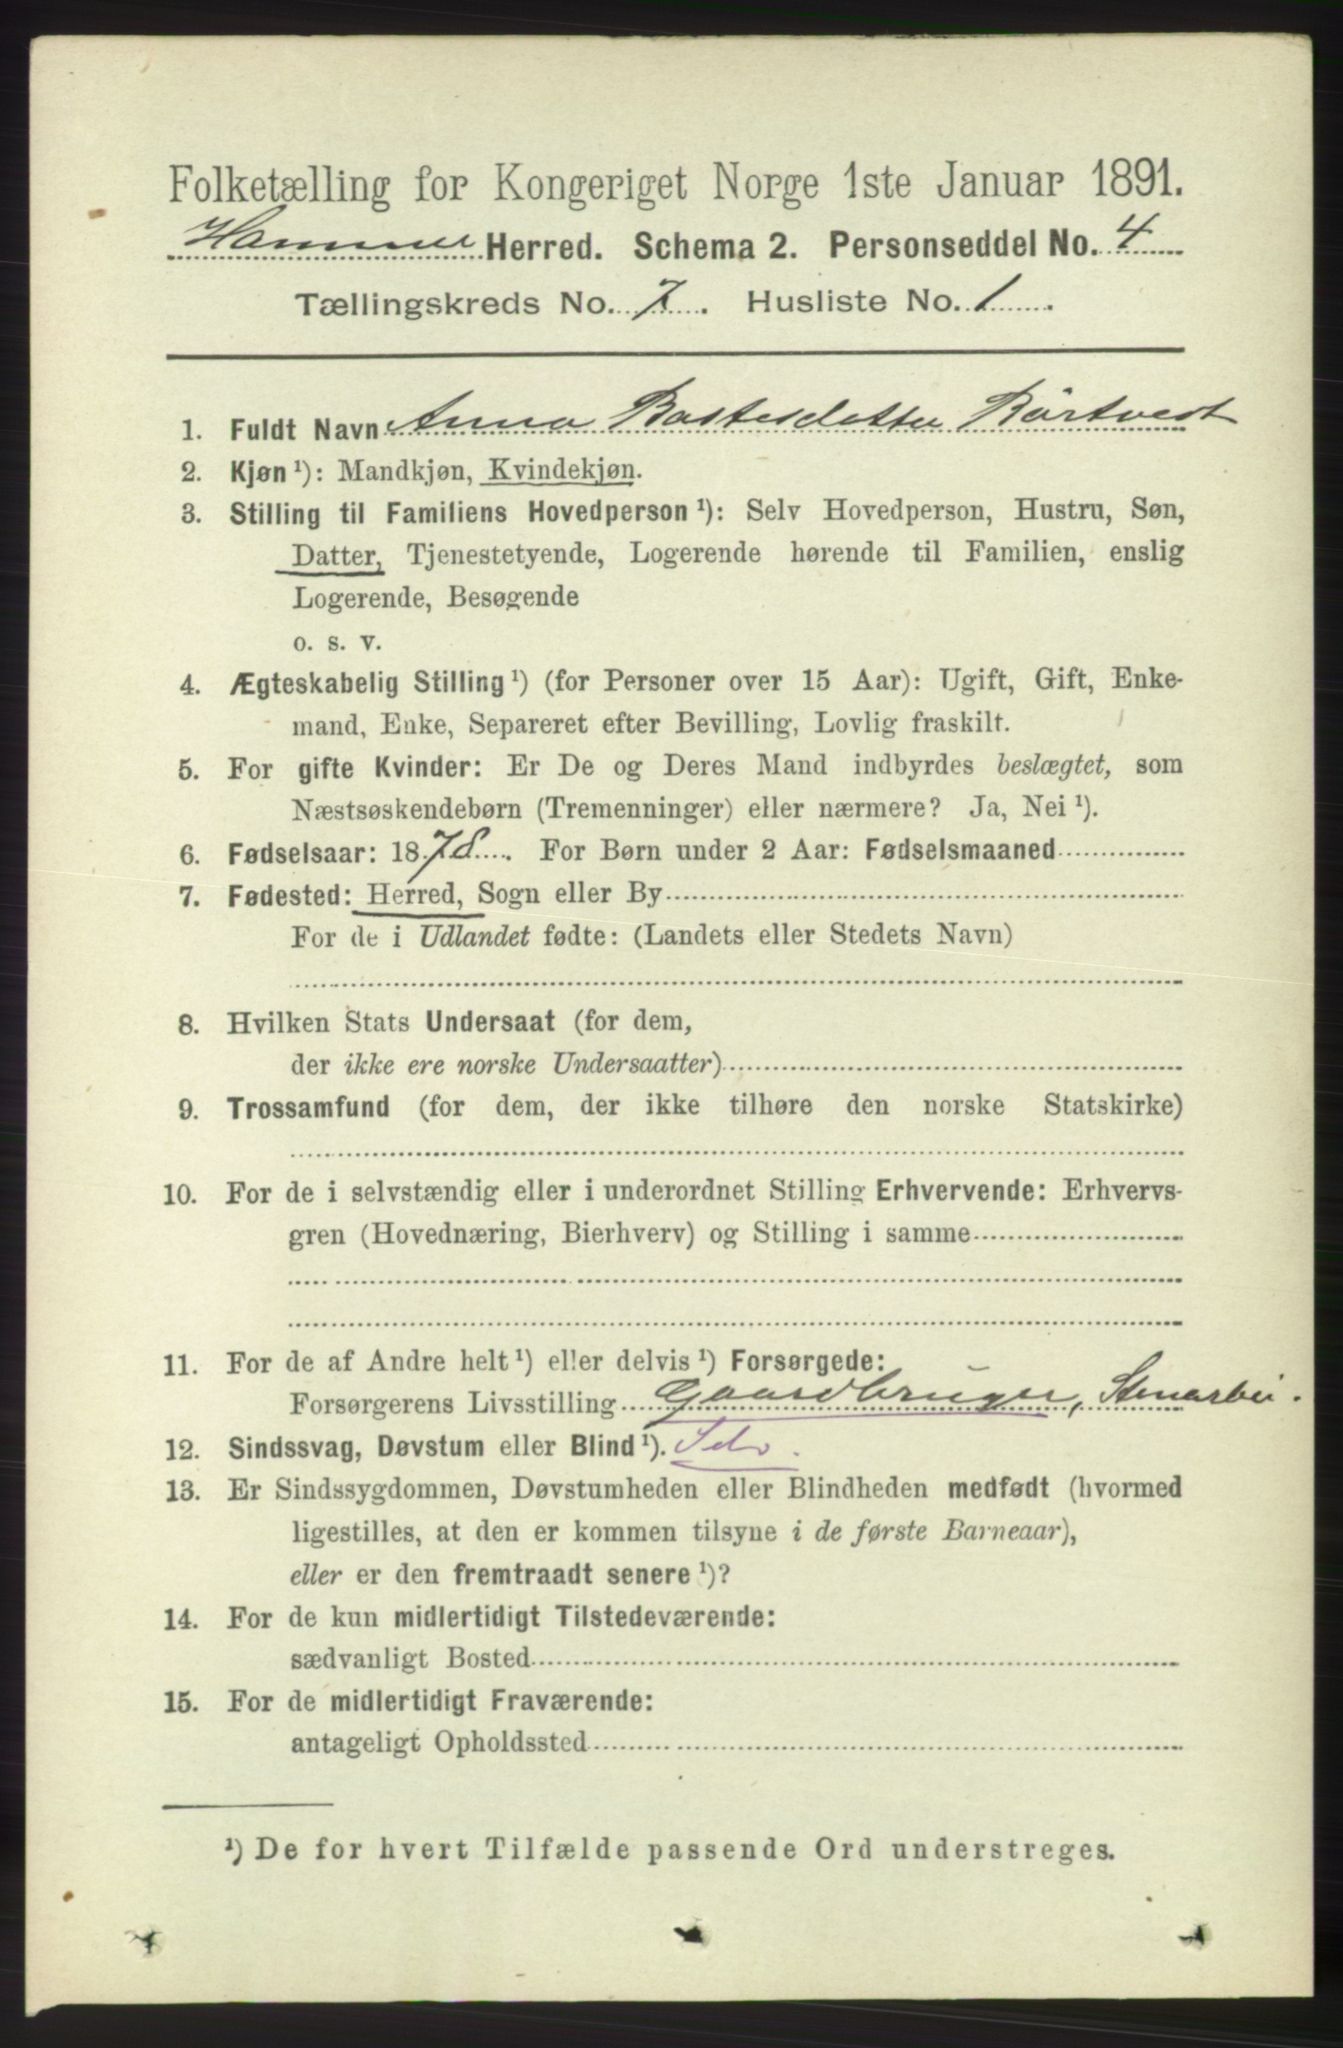 Folketælling for Kongeriget Norge 1ste Januar 1891.
Hammer Herred. Schema 2. Personseddel No. 4
Tællingskreds No. 7. Husliste No. 1.
1. Fuldt Navn Anna Bastesdatter Rörtvedt
2. Kjøn¹): Mandkjøn, Kvindekjøn.
3. Stilling til Familiens Hovedperson¹): Selv Hovedperson, Hustru, Søn,
Datter, Tjenestetyende, Logerende hørende til Familien, enslig
Logerende, Besøgende
o. s. v.
4. Ægteskabelig Stilling¹) (for Personer over 15 Aar): Ugift, Gift, Enke-
mand, Enke, Separeret efter Bevilling, Lovlig fraskilt.
5. For gifte Kvinder: Er De og Deres Mand indbyrdes beslægtet, som
Næstsøskendebørn (Tremenninger) eller nærmere? Ja, Nei¹).
6. Fødselsaar: 1878. For Børn under 2 Aar: Fødselsmaaned
7. Fødested: Herred, Sogn eller By
For de i Udlandet fødte: (Landets eller Stedets Navn)
8. Hvilken Stats Undersaat (for dem,
der ikke ere norske Undersaatter)
9. Trossamfund (for dem, der ikke tilhøre den norske Statskirke)
10. For de i selvstændig eller i underordnet Stilling Erhvervende: Erhvervs-
gren (Hovednæring, Bierhverv) og Stilling i samme
11. For de af Andre helt¹) eller delvis¹) Forsørgede:
Forsørgerens Livsstilling Gaardbruger, Stenarbei.
12. Sindssvag, Døvstum eller Blind¹). Selv.
13. Er Sindssygdommen, Døvstumheden eller Blindheden medfødt (hvormed
ligestilles, at den er kommen tilsyne i de første Barneaar),
eller er den fremtraadt senere¹)?
14. For de kun midlertidigt Tilstedeværende:
sædvanligt Bosted
15. For de midlertidigt Fraværende:
antageligt Opholdssted
¹) De for hvert Tilfælde passende Ord understreges.